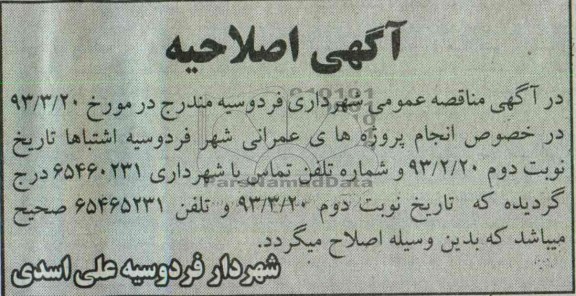 آگهی اصلاحیه
در آگهی مناقصه عمومی شهرداری فردوسیه مندرج در مورخ ۹۳/۳/۲۰
در خصوص انجام پروژه ها ی عمرانی شهر فردوسیه اشتباها تاریخ
نوبت دوم ۹۳/۲/۲۰ و شماره تلفن تماس با شهرداری ۶۵۴۶۰۲۳۱ درج
گردیده که تاریخ نوبت دوم ۹۳/۳/۲۰ و تلفن ۶۵۴۶۵۲۳۱ صحیح
میباشد که بدین وسیله اصلاح میگردد.
شهردار فردوسیه علی اسدی
ParsNamadData